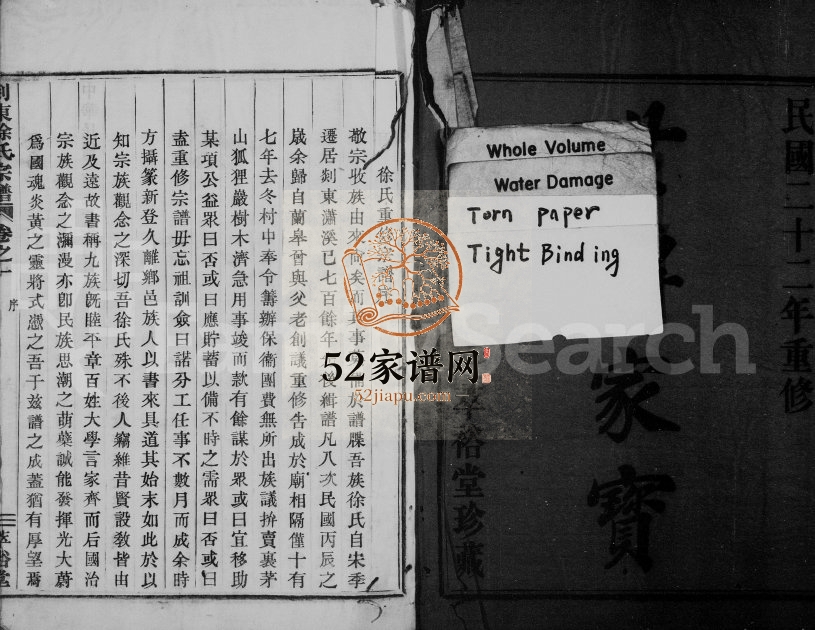 民國二十二年重修
家寶
裕堂珍藏
Whole Volume
Water Damage
Torn paper
Tight Binding
52家谱网
52jiapu.com
Search
徐氏重修宗譜序
敬宗收族由來尚矣而其事備於譜牒吾族徐氏自宋季
遷居剡東瀟溪已七百餘年修緝譜凡八次民國丙辰之
歲余歸自蘭皋晉與父老創議重修告成於廟相隔僅十有
七年去冬村中奉令籌辦保衛團費無所出族議拚賣裏茅
山狐狸巖樹木濟急用事竣而款有餘謀於眾或曰宜移助
某項公益眾曰否或曰應貯蓄以備不時之需眾曰否或曰
盍重修宗譜毋忘祖訓僉曰諾分工任事不數月而成余時
方攝篆新登久離鄉邑族人以書來具道其始末如此於以
知宗族觀念之深切吾徐氏殊不後人竊維昔賢設敎皆由
近及遠故書稱九族既睦平章百姓大學言家齊而后國治
宗族觀念之瀰漫亦即民族思潮之萌蘖誠能發揮光大蔚
爲國魂炎黃之靈將式憑之吾于玆譜之成蓋猶有厚望焉
剡東徐氏宗譜 卷之一 序